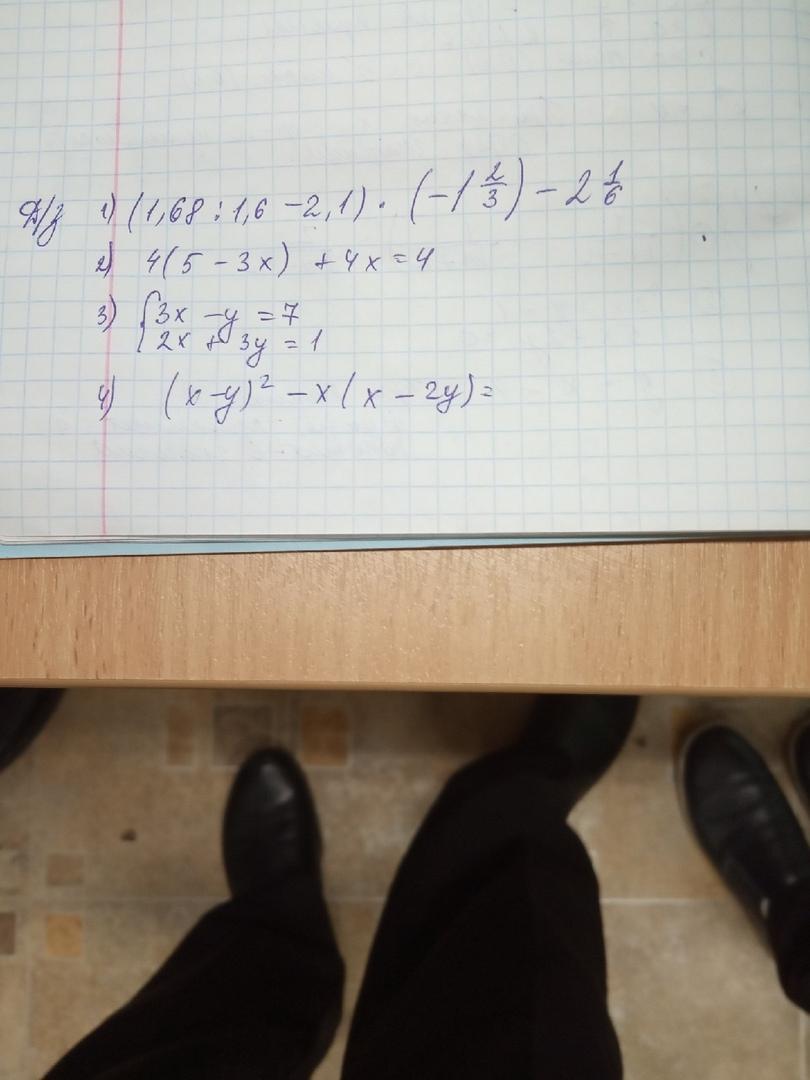 Д/з 1) (1,68 : 1,6 - 2,1) · (-1 2/3) - 2 1/6
2) 4(5 - 3x) + 4x = 4
3) { 3x - y = 7
2x + 3y = 1
4) (x-y)² - x(x - 2y) =